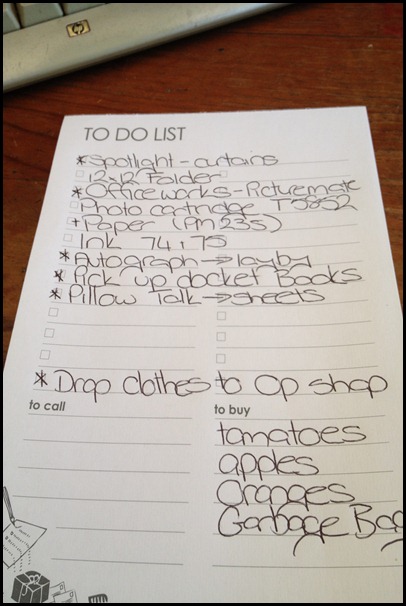 hp
TO DO LIST
* Spotlight - curtains
12x12 Folder
* Officeworks - Picturemate
Photo cartridge T5852
+ Paper (PM 235)
Ink 74 + 75
* Autograph → layby
* Pick up docket Books
* Pillow Talk → sheets
* Drop clothes to Op shop
to call
to buy
tomatoes
apples
Oranges
Garbage Bag